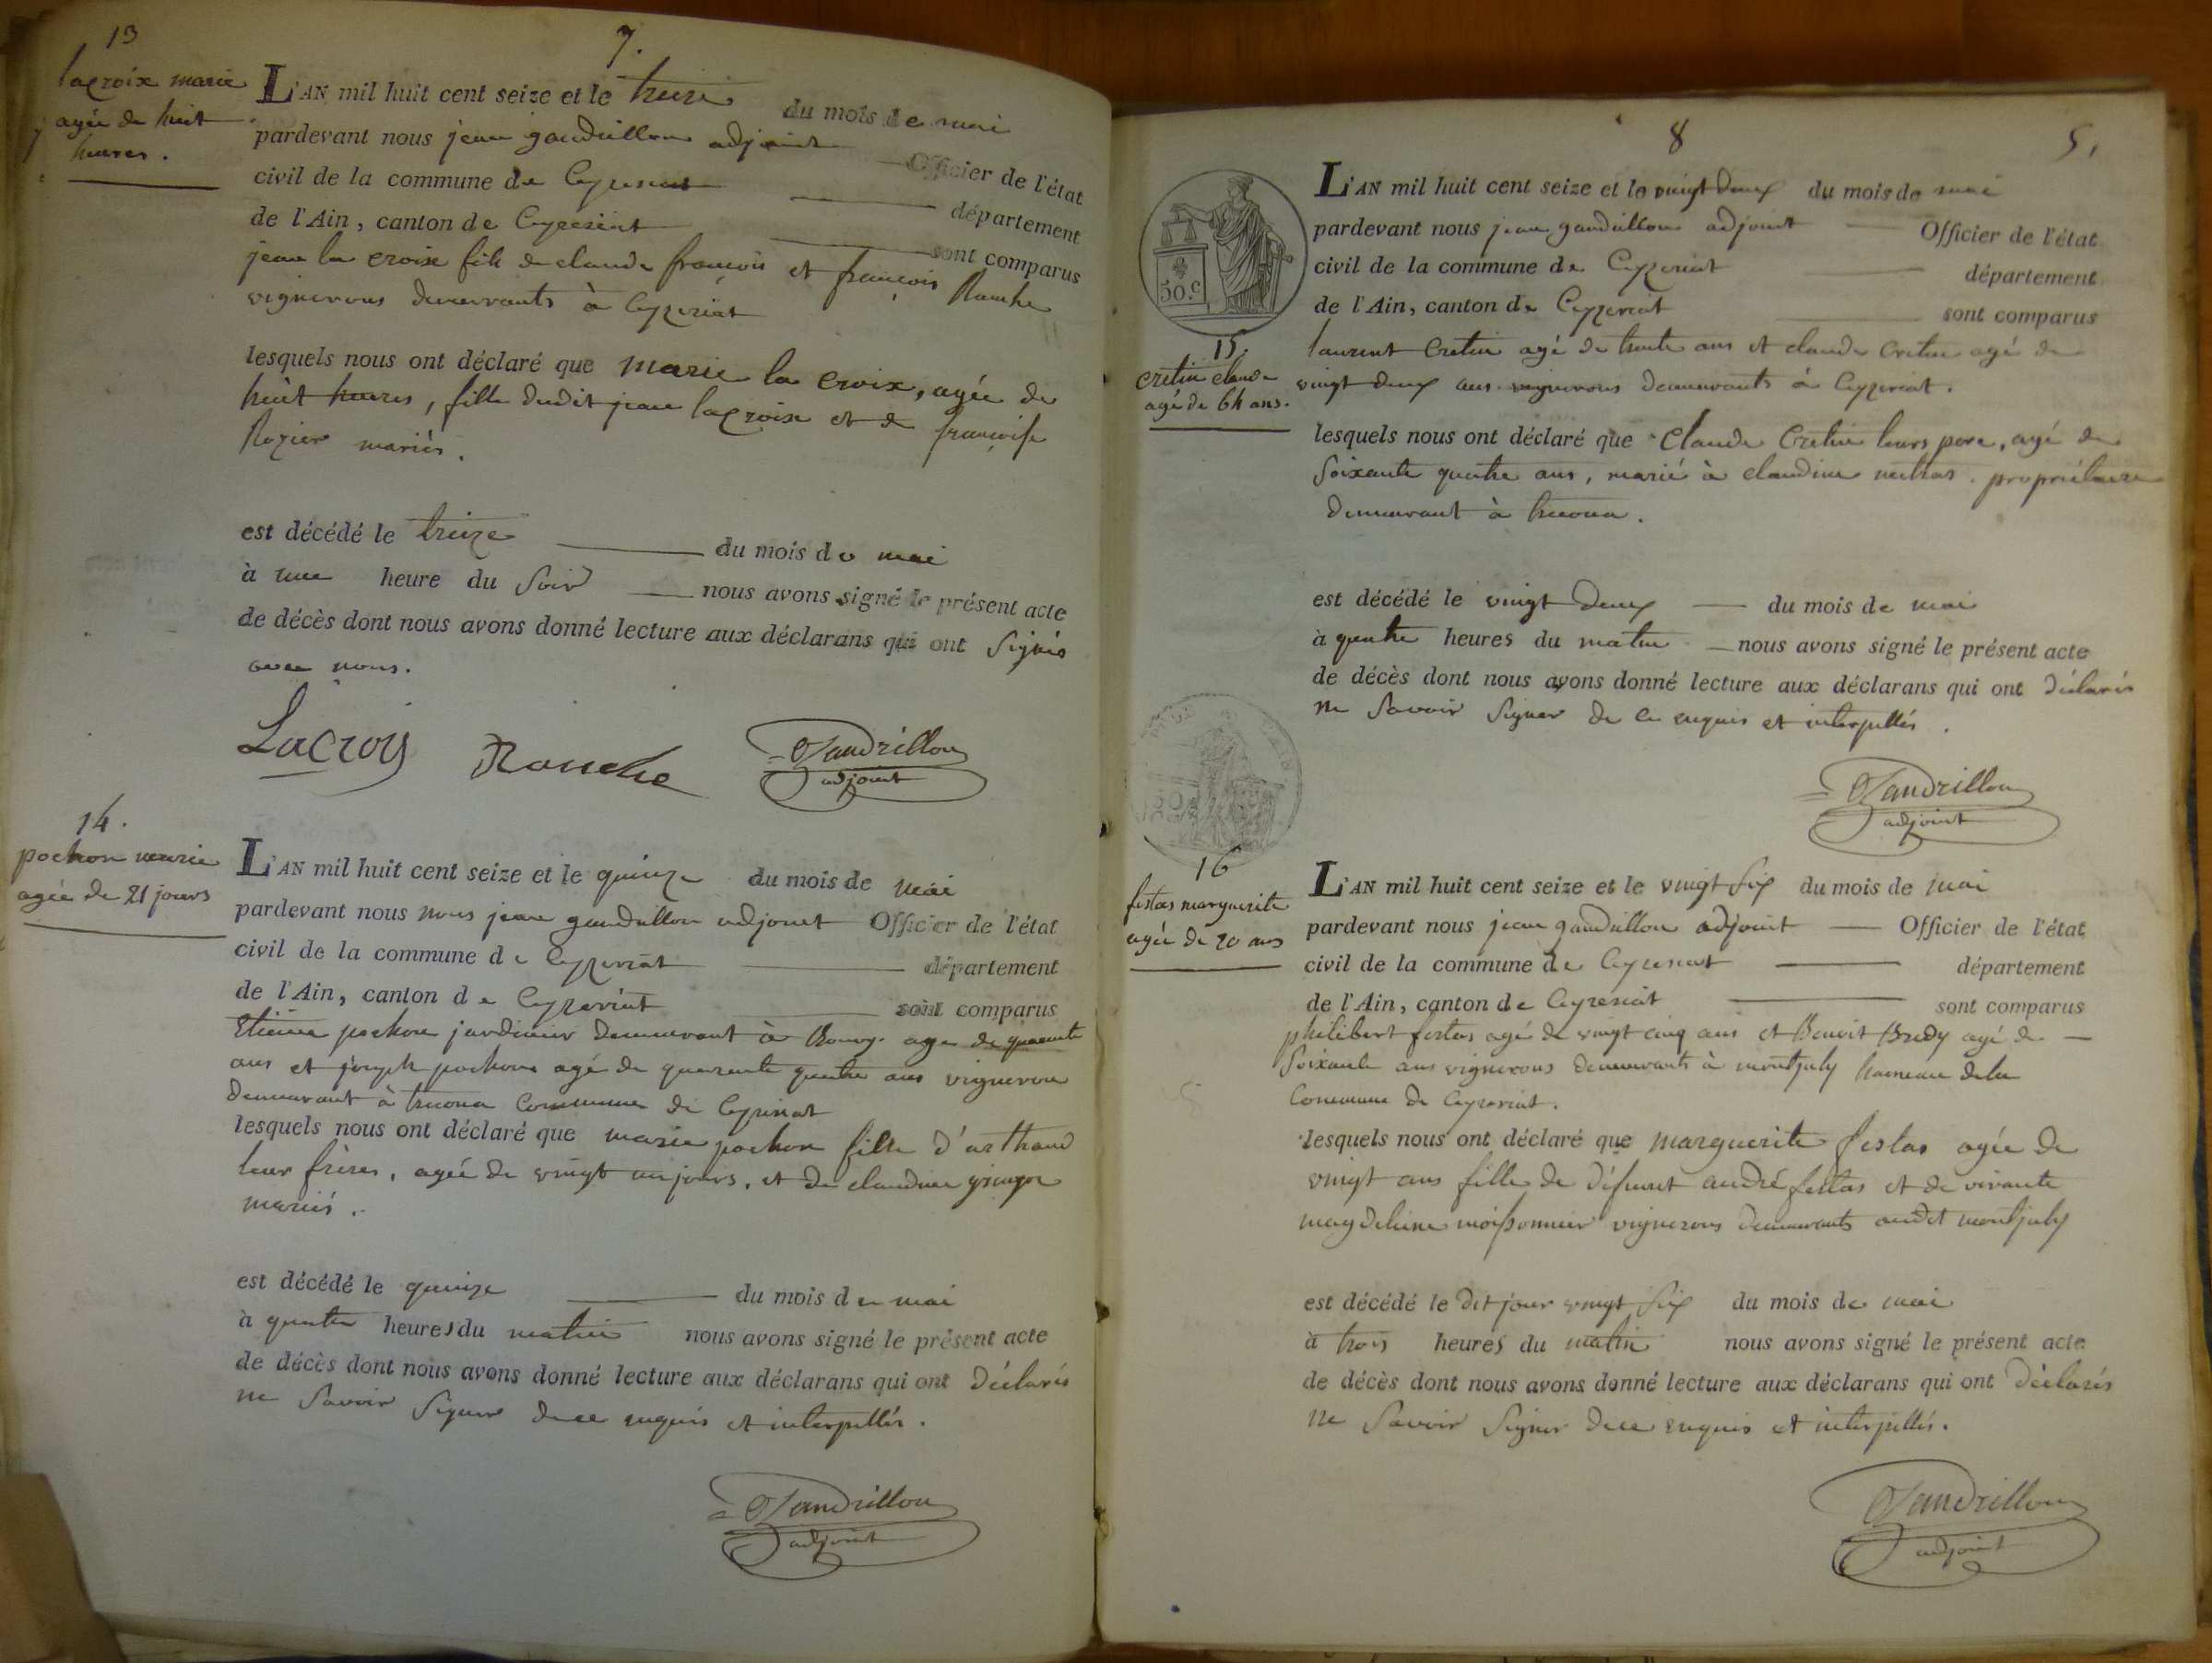 13
7.
lacroix marie
agée de huit
heures.
L'AN mil huit cent seize et le treize du mois de mai
pardevant nous jean gaudrillon adjoint Officier de l'état
civil de la commune de Ceyzeriat département
de l'Ain, canton de Ceyzeriat sont comparus
jean la croix fils de claude françois et françois Ronche
vignerons demeurants à Ceyzeriat
lesquels nous ont déclaré que marie la croix, agée de
huit heures, fille dudit jean lacroix et de françoise
Rozier mariés.
est décédé le treize du mois de mai
à une heure du soir nous avons signé le présent acte
de décès dont nous avons donné lecture aux déclarans qui ont signés
avec nous.
Lacroix Ronche Gaudrillon
adjoint
14.
pochon marie
agée de 21 jours
L'AN mil huit cent seize et le quinze du mois de mai
pardevant nous nous jean gaudrillon adjoint Officier de l'état
civil de la commune de Ceyzeriat département
de l'Ain, canton de Ceyzeriat sont comparus
Etienne pochon jardinier demeurant à Bourg agé de quarante
ans et joseph pochon agé de quarante quatre ans vigneron
demeurant à treconna Commune de Ceyzeriat
lesquels nous ont déclaré que marie pochon fille d'arthaud
leur frères, agée de vingt un jours, et de claudine
mariés.
est décédé le quinze du mois de mai
à quatre heures du matin nous avons signé le présent acte
de décès dont nous avons donné lecture aux déclarans qui ont déclarés
ne savoir signer de ce enquis et interpellés.
Gaudrillon
adjoint
8
5,
50.c
L'AN mil huit cent seize et le vingt deux du mois de mai
pardevant nous jean gaudrillon adjoint Officier de l'état
civil de la commune de Ceyzeriat département
de l'Ain, canton de Ceyzeriat sont comparus
15,
cretin claude
agé de 64 ans.
laurent Cretin agé de trente ans et claude Cretin agé de
vingt deux ans vignerons demeurants à Ceyzeriat.
lesquels nous ont déclaré que Claude Cretin leurs pere, agé de
soixante quatre ans, marié à claudine propriétaire
demeurant à treconna.
est décédé le vingt deux du mois de mai
à quatre heures du matin nous avons signé le présent acte
de décès dont nous avons donné lecture aux déclarans qui ont déclarés
ne savoir signer de ce enquis et interpellés.
Gaudrillon
adjoint
16
festas marguerite
agée de 20 ans
L'AN mil huit cent seize et le vingt six du mois de mai
pardevant nous jean gaudrillon adjoint Officier de l'état
civil de la commune de Ceyzeriat département
de l'Ain, canton de Ceyzeriat sont comparus
philibert festas agé de vingt cinq ans et Benoit Bredy agé de
soixante ans vignerons demeurants à montjuly hameau dela
Commune de Ceyzeriat.
lesquels nous ont déclaré que marguerite festas agée de
vingt ans fille de défunt andré festas et de vivante
magdeleine moissonnier vignerons demeurants audit montjuly
est décédé le dit jour vingt six du mois de mai
à trois heures du matin nous avons signé le présent acte
de décès dont nous avons donné lecture aux déclarans qui ont déclarés
ne savoir signer de ce enquis et interpellés.
Gaudrillon
adjoint